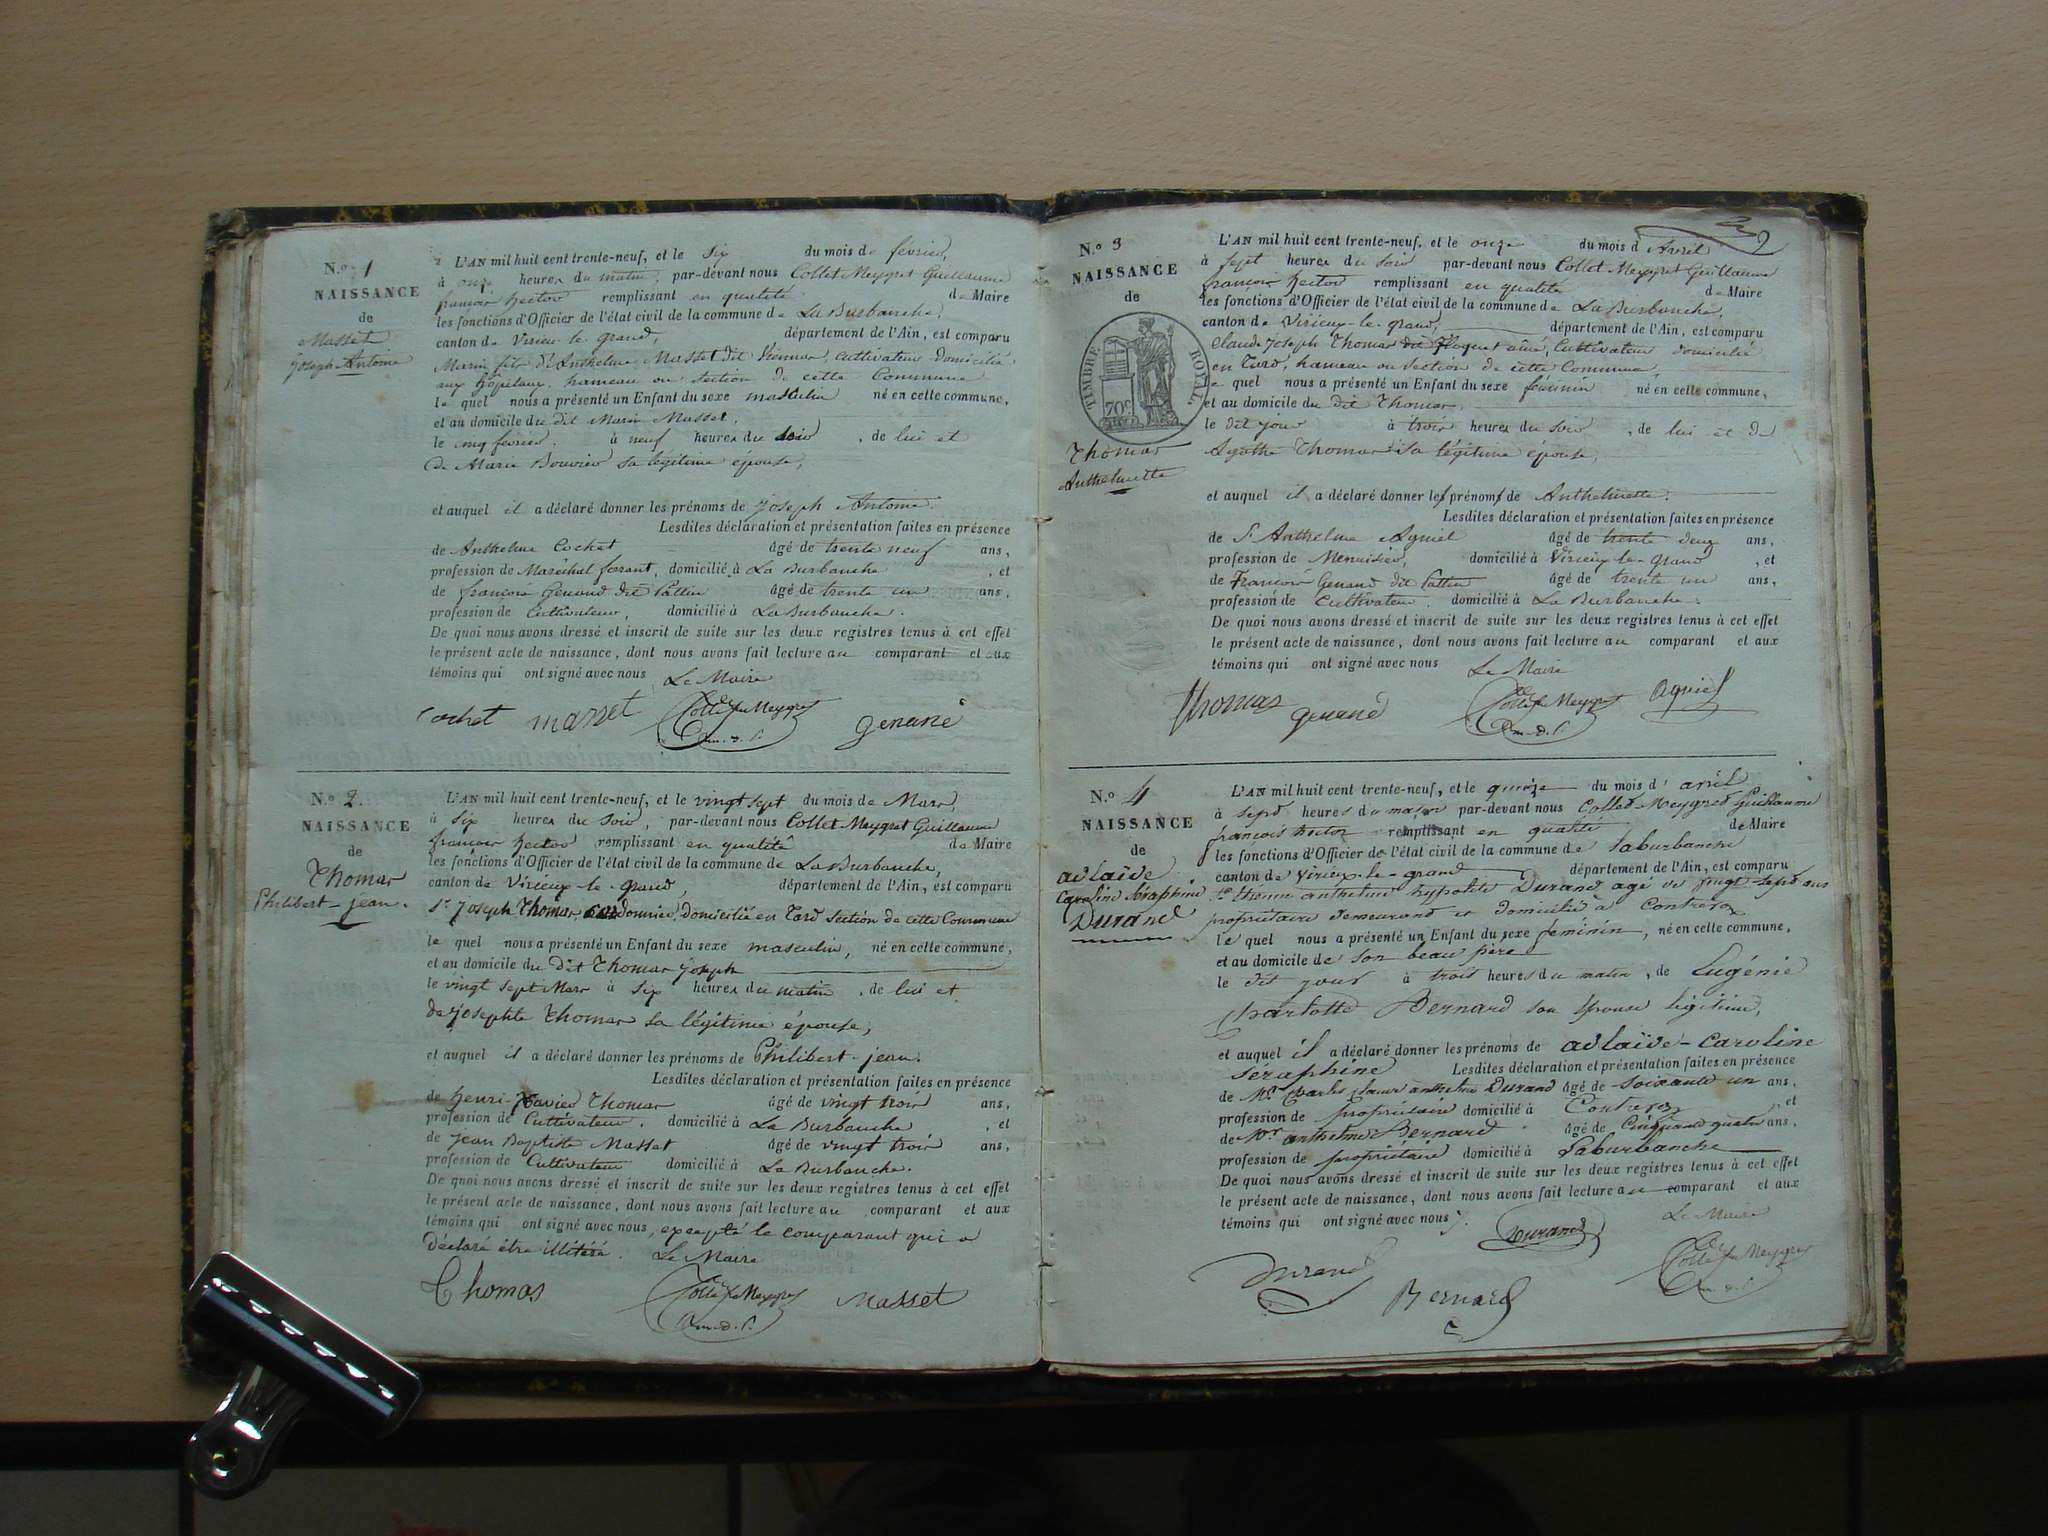 N.º 1
NAISSANCE
de
Masset
Joseph Antoine
L'AN mil huit cent trente-neuf, et le six du mois de février,
à onze heures du matin, par-devant nous Collet-Meygret Guillaume
françois hector remplissant en qualité de Maire
les fonctions d'Officier de l'état civil de la commune de La Burbanche,
canton de Virieu-le-grand, département de l'Ain, est comparu
Marin fils d'Anthelme Masset dit Viennur, cultivateur domicilié
aux hôpitaux, hameau ou section de cette Commune
le quel nous a présenté un Enfant du sexe masculin né en cette commune,
et au domicile du dit Marin Masset,
le cinq février, à neuf heures du soir, de lui et
de Marie Bouvier sa légitime épouse,
et auquel il a déclaré donner les prénoms de Joseph Antoine.
Lesdites déclaration et présentation faites en présence
de Anthelme Cochet âgé de trente neuf ans,
profession de Maréchal ferrant, domicilié à La Burbanche, et
de françois Genand dit Pattin âgé de trente un ans,
profession de Cultivateur, domicilié à La Burbanche.
De quoi nous avons dressé et inscrit de suite sur les deux registres tenus à cet effet
le présent acte de naissance, dont nous avons fait lecture au comparant et aux
témoins qui ont signé avec nous Le Maire
Cochet masset Collet Meygret genand
N.º 2.
NAISSANCE
de
Thomas
Philibert-jean.
L'AN mil huit cent trente-neuf, et le vingt sept du mois de Mars,
à six heures du soir, par-devant nous Collet-Meygret Guillaume
françois hector remplissant en qualité de Maire
les fonctions d'Officier de l'état civil de la commune de La Burbanche,
canton de Virieux-le-grand, département de l'Ain, est comparu
Sr. Joseph Thomas cordonnier, Domicilié en Tard section de cette Commune
le quel nous a présenté un Enfant du sexe masculin, né en cette commune,
et au domicile du dit Thomas Joseph
le vingt sept Mars à six heures du matin, de lui et
de Josephte Thomas sa légitime épouse;
et auquel il a déclaré donner les prénoms de Philibert-jean.
Lesdites déclaration et présentation faites en présence
de henri-Xavier Thomas âgé de vingt trois ans,
profession de Cultivateur, domicilié à La Burbanche, et
de jean Baptiste Masset âgé de vingt trois ans,
profession de Cultivateur domicilié à La Burbanche.
De quoi nous avons dressé et inscrit de suite sur les deux registres tenus à cet effet
le présent acte de naissance, dont nous avons fait lecture au comparant et aux
témoins qui ont signé avec nous, excepté le comparant qui a
déclaré être illitéré. Le Maire
Thomas Collet Meygret Masset
2
N.º 3
NAISSANCE
de
TIMBRE ROYAL
70c
Thomas
Anthelmette
L'AN mil huit cent trente-neuf, et le onze du mois d'Avril
à sept heures du soir par-devant nous Collet-Meygret Guillaume
françois hector remplissant en qualité de Maire
les fonctions d'Officier de l'état civil de la commune de La Burbanche,
canton de Virieux-le-grand, département de l'Ain, est comparu
Claude Joseph Thomas dit floquet aîné, Cultivateur domicilié
en Tard, hameau ou section de cette Commune,
le quel nous a présenté un Enfant du sexe féminin né en cette commune,
et au domicile du dit Thomas,
le dit jour à trois heures du soir, de lui et de
Agathe Thomas sa légitime épouse,
et auquel il a déclaré donner les prénoms de Anthelmette.
Lesdites déclaration et présentation faites en présence
de Sr. Anthelme Agniel âgé de trente deux ans,
profession de Menuisier, domicilié à Virieux-le-grand, et
de François Genand dit Pattin âgé de trente un ans,
profession de Cultivateur domicilié à La Burbanche.
De quoi nous avons dressé et inscrit de suite sur les deux registres tenus à cet effet
le présent acte de naissance, dont nous avons fait lecture au comparant et aux
témoins qui ont signé avec nous Le Maire
Thomas genand Collet Meygret agniel
N.º 4
NAISSANCE
de
adlaïde
Caroline Séraphine
Durand
L'AN mil huit cent trente-neuf, et le quinze du mois d'avril
à sept heures du matin par-devant nous Collet-Meygret Guillaume
françois hector remplissant en qualité de Maire
les fonctions d'Officier de l'état civil de la commune de laburbanche
canton de virieux-le-grand département de l'Ain, est comparu
anthelme hyppolite Durand agé de vingt-sept ans
propriétaire demeurant et domicilié à Contrevoz
le quel nous a présenté un Enfant du sexe féminin, né en cette commune,
et au domicile de son beau père
le dit jour à trois heures du matin, de Eugénie
Charlotte Bernard son épouse légitime,
et auquel il a déclaré donner les prénoms de adlaïde-Caroline
seraphine Lesdites déclaration et présentation faites en présence
de Mr. Charles anthelme Durand âgé de soixante un ans,
profession de propriétaire domicilié à Contrevoz, et
de Mr anthelme Bernard âgé de Cinquante quatre ans,
profession de propriétaire domicilié à Laburbanche
De quoi nous avons dressé et inscrit de suite sur les deux registres tenus à cet effet
le présent acte de naissance, dont nous avons fait lecture au comparant et aux
témoins qui ont signé avec nous. Durand Le Maire
Durand Bernard Collet Meygret